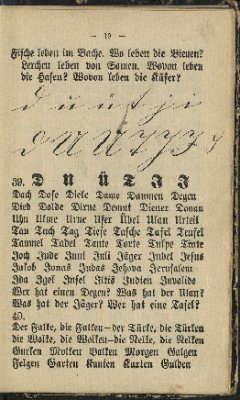 — 19 —
Fische leben im Bache. Wo leben die Bienen?
Lerchen leben von Samen. Wovon leben
die Hasen? Wovon leben die Käfer?
d u ü t j i
D U Ü T J I
39. D U Ü T J I
Dach Dose Diele Dame Daumen Degen
Dieb Dolde Dirne Demut Diener Donau
Uhr Ulme Urne Ufer Übel Ulan Urteil
Tau Tuch Tag Tiefe Tasche Tafel Teufel
Taumel Tadel Tante Torte Tulpe Tinte
Joch Jude Juni Juli Jäger Jubel Jesus
Jakob Jonas Judas Jehova Jerusalem
Ida Igel Insel Iltis Indien Invalide
Wer hat einen Degen? Was hat der Ulan?
Was hat der Jäger? Wer hat eine Tafel?
40.
Der Falke, die Falken — der Türke, die Türken
die Wolke, die Wolken — die Nelke, die Nelken
Gurken Molken Balken Morgen Galgen
Felgen Garten Kanten Karten Gulden